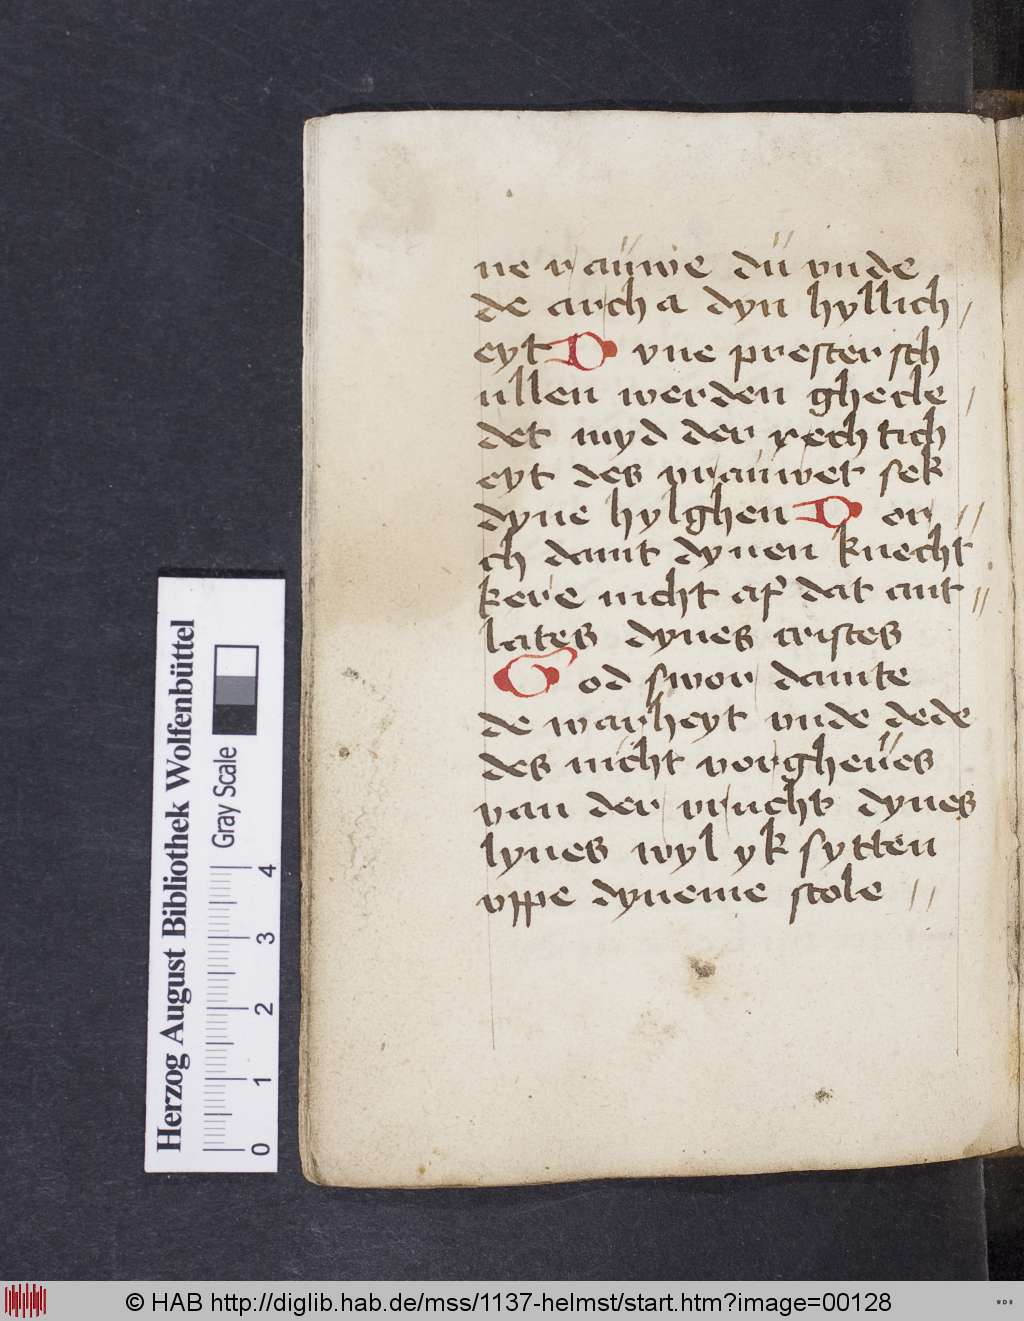 ne rauwe dü vnde
de archa dyn hyllich
eyt D yne prester sch
ullen werden ghecle
det myd der rech tich
eyt des vrauwet sek
dyne hylghen D or
ch dauit dynen knecht
kere nicht af dat ant
lates dynes cristes
God swor dauite
de warheyt vnde dede
des nicht vorgheues
van der vrucht dynes
lyues wyl yk sytten
vppe dyneme stole
Herzog August Bibliothek Wolfenbüttel
Gray Scale
0 1 2 3 4
© HAB http://diglib.hab.de/mss/1137-helmst/start.htm?image=00128